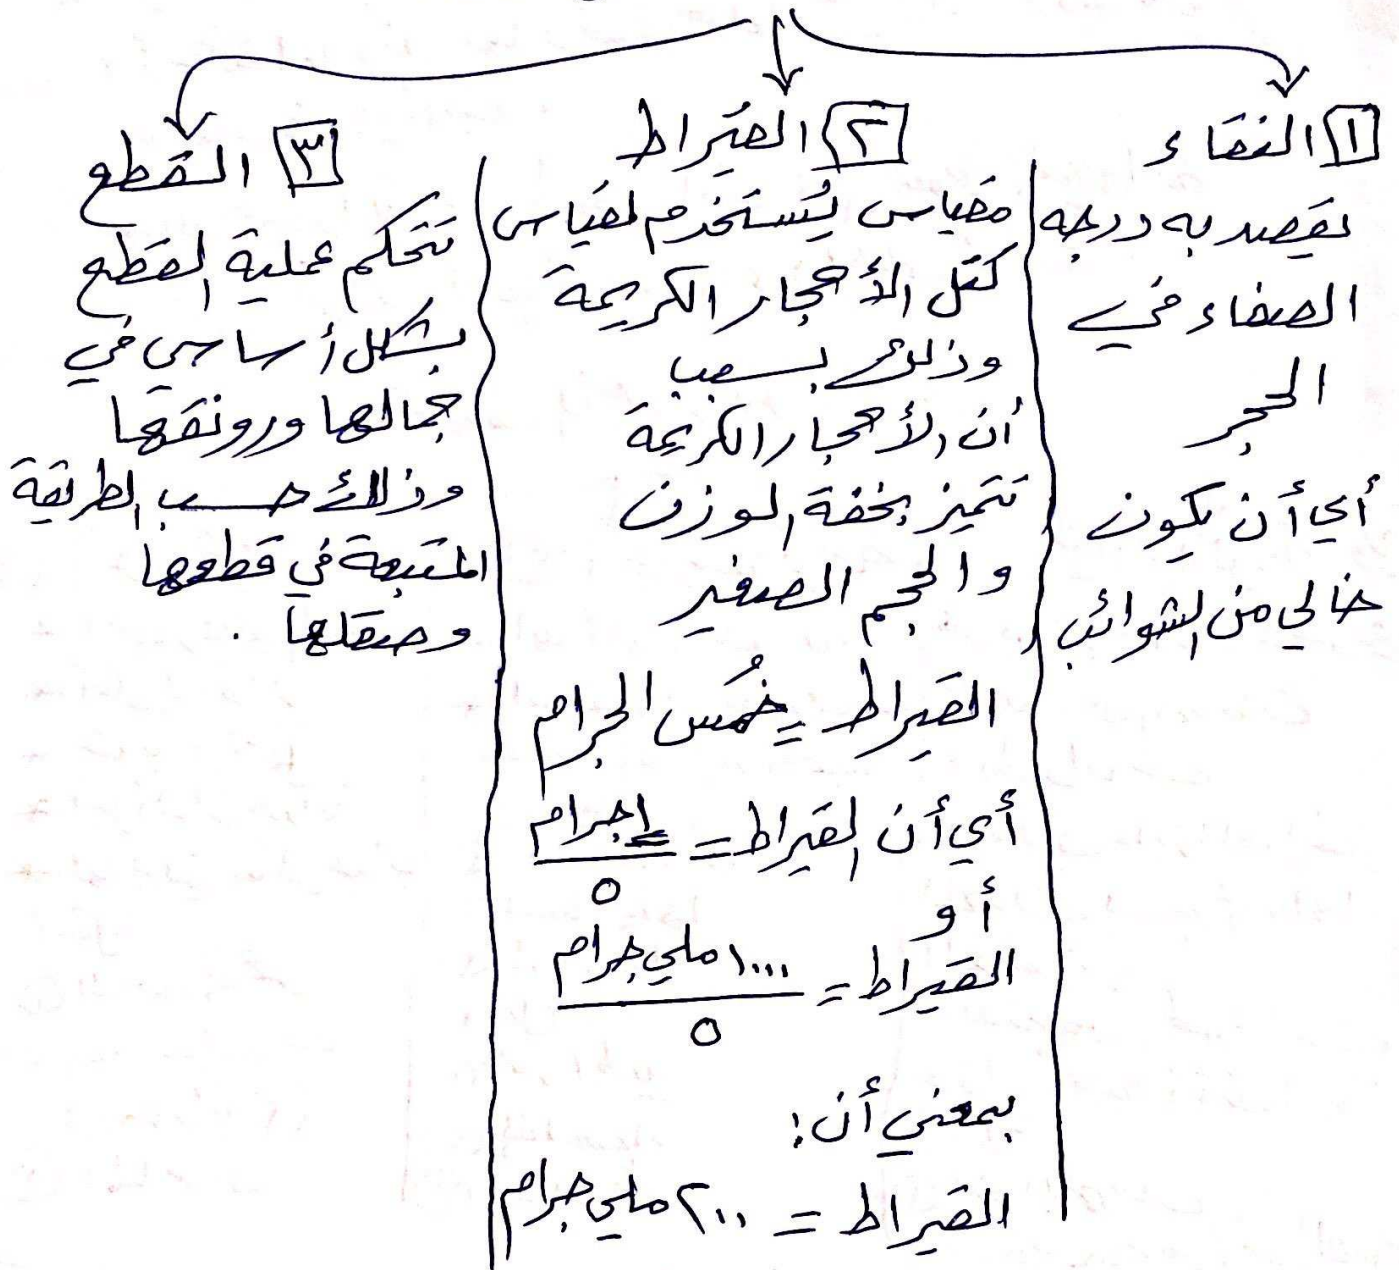 ١ النقاء
يقصد به درجه
الصفاء في
الحجر
أي أن يكون
خالي من الشوائب
٢ القيراط
مقياس يُستخدم لقياس
كتل الأحجار الكريمة
وذلك بسبب
أن الأحجار الكريمة
تتميز بخفة الوزن
والحجم الصغير
القيراط = خُمس الجرام
أي أن القيراط = ١ جرام
٥
أو
القيراط = ١٠٠٠ ملي جرام
٥
بمعني أن:
القيراط = ٢٠٠ ملي جرام
٣ القطع
تتحكم عملية القطع
بشكل أساسي في
جمالها ورونقها
وذلك حسب الطريقة
المتبعة في قطعها
وصقلها .